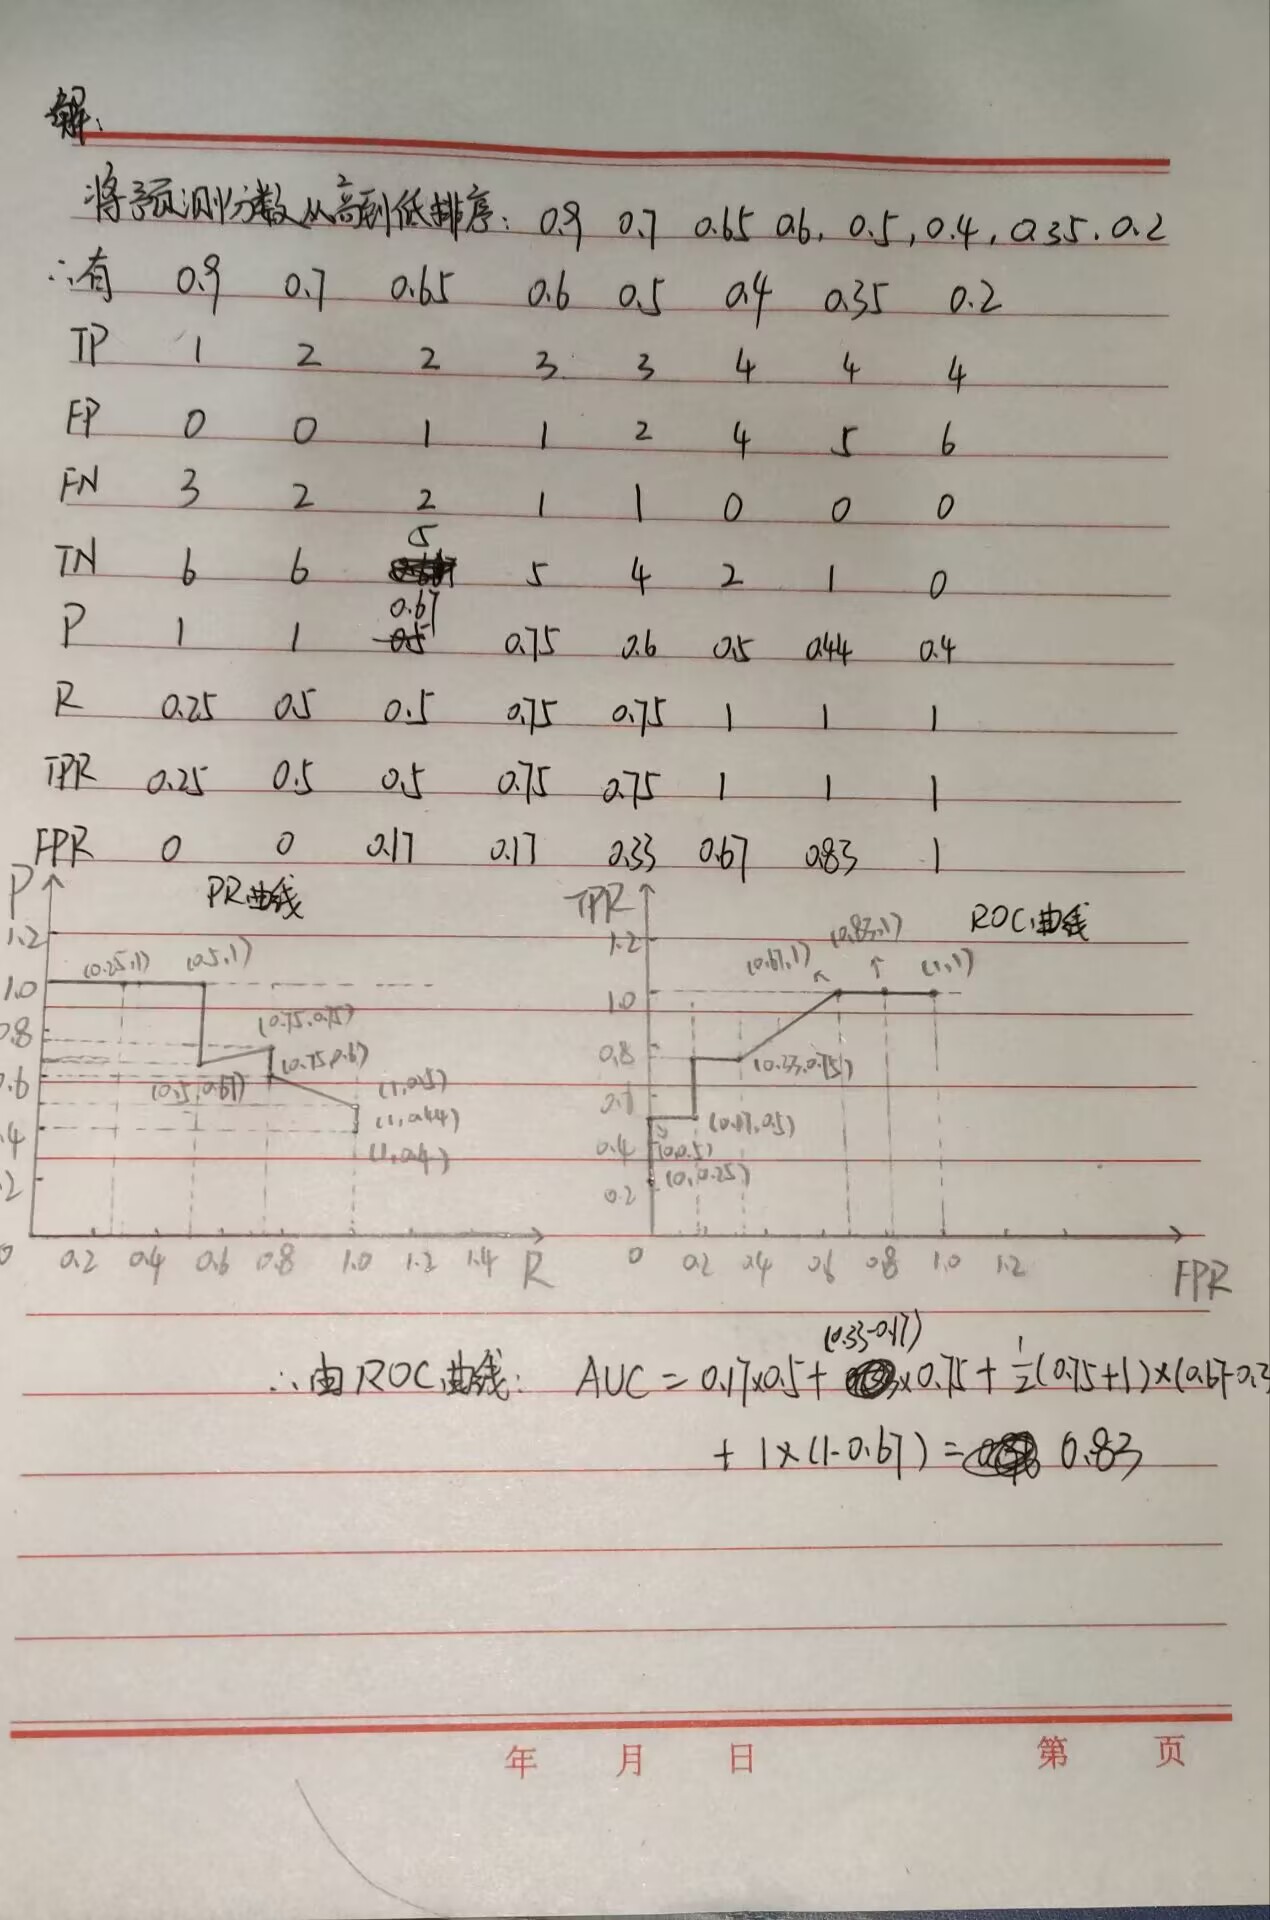 解:
将预测分数从高到低排序: 0.9 0.7 0.65 0.6, 0.5, 0.4, 0.35, 0.2
∴有 0.9 0.7 0.65 0.6 0.5 0.4 0.35 0.2
TP 1 2 2 3 3 4 4 4
FP 0 0 1 1 2 4 5 6
FN 3 2 2 1 1 0 0 0
TN 6 6 5 5 4 2 1 0
P 1 1 0.67 0.75 0.6 0.5 0.44 0.4
R 0.25 0.5 0.5 0.75 0.75 1 1 1
TPR 0.25 0.5 0.5 0.75 0.75 1 1 1
FPR 0 0 0.17 0.17 0.33 0.67 0.83 1
P PR曲线
1.2
(0.25,1) (0.5,1)
1.0
0.8 (0.75,0.75)
(0.75,0.6)
0.6 (0.5,0.67) (1,0.5)
(1,0.44)
.4 (1,0.4)
2
0 0.2 0.4 0.6 0.8 1.0 1.2 1.4 R
TPR ROC曲线
1.2 (0.83,1)
(0.67,1) (1,1)
1.0
0.8 (0.33,0.75)
(0.17,0.5)
0.4 (0,0.5)
(0,0.25)
0.2
0 0.2 0.4 0.6 0.8 1.0 1.2 FPR
∴由ROC曲线: AUC = 0.17×0.5 + (0.33-0.17)×0.75 + 1/2(0.75+1)×(0.67-0.3
+ 1×(1-0.67) = 0.83
年 月 日 第 页